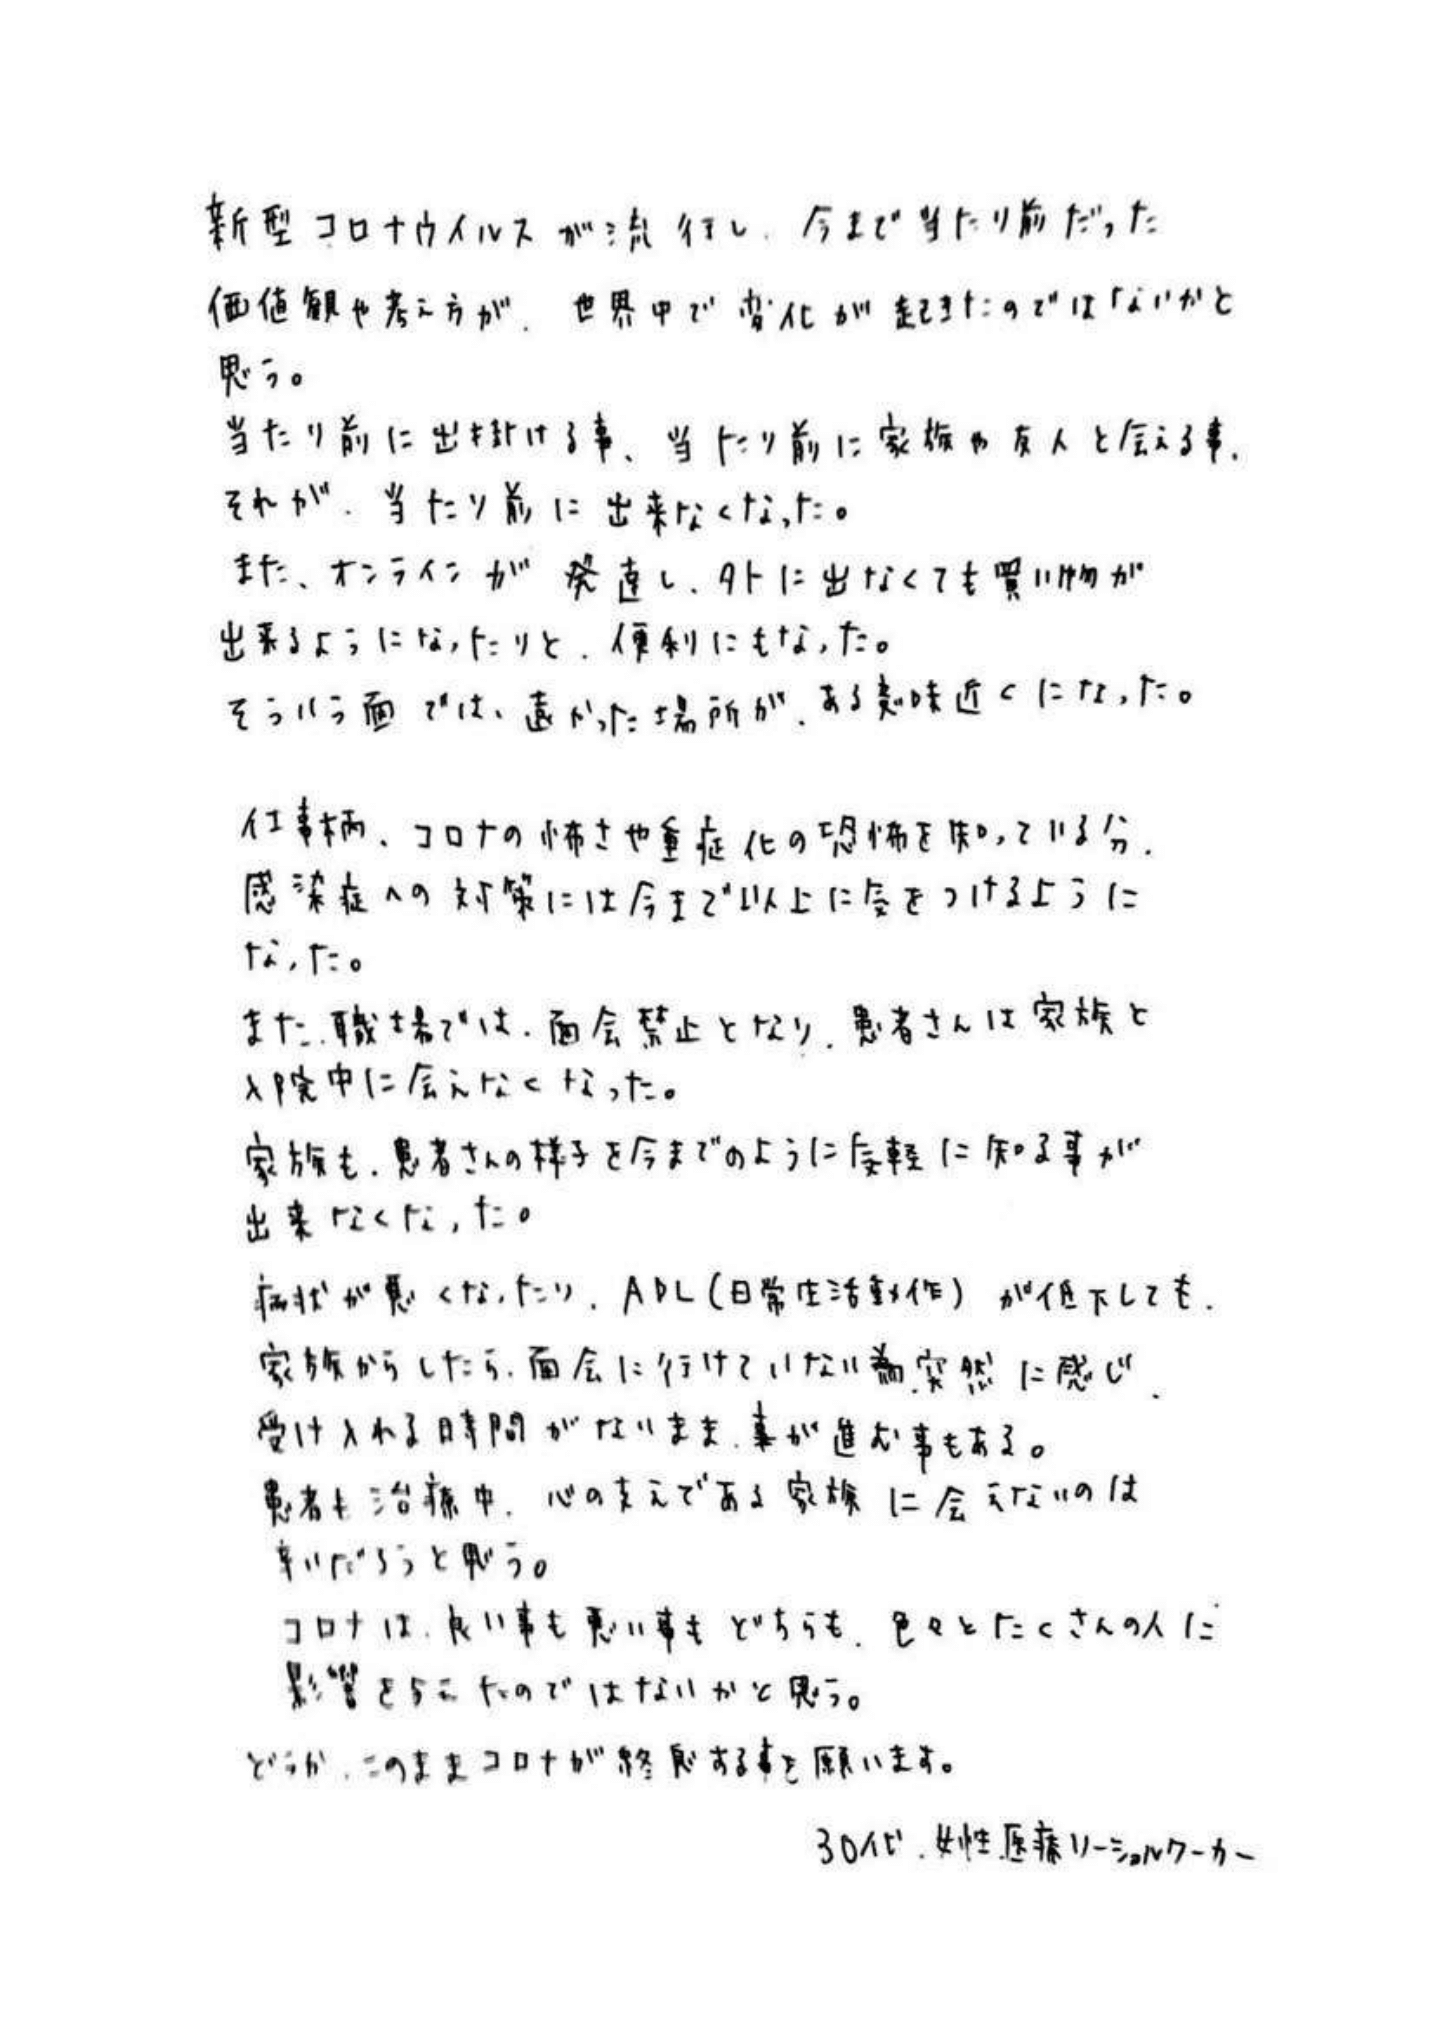 新型コロナウイルスが流行し、今まで当たり前だった
価値観や考え方が、世界中で変化が起きたのではないかと
思う。
当たり前に出掛ける事、当たり前に家族や友人と会える事、
それが、当たり前に出来なくなった。
また、オンラインが発達し、外に出なくても買い物が
出来るようになったりと、便利にもなった。
そういう面では、遠かった場所が、ある意味近くになった。
仕事柄、コロナの怖さや重症化の恐怖を知っている分、
感染症への対策には今まで以上に気をつけるように
なった。
また、職場では、面会禁止となり、患者さんは家族と
入院中に会えなくなった。
家族も、患者さんの様子を今までのように気軽に知る事が
出来なくなった。
病状が悪くなったり、ADL(日常生活動作)が低下しても、
家族からしたら、面会に行けていない為、突然に感じ、
受け入れる時間がないまま、事が進む事もある。
患者も治療中、心の支えである家族に会えないのは
辛いだろうと思う。
コロナは、良い事も悪い事もどちらも、色々とたくさんの人に
影響を与えたのではないかと思う。
どうか、このままコロナが終息する事を願います。
30代、女性、医療ソーシャルワーカー